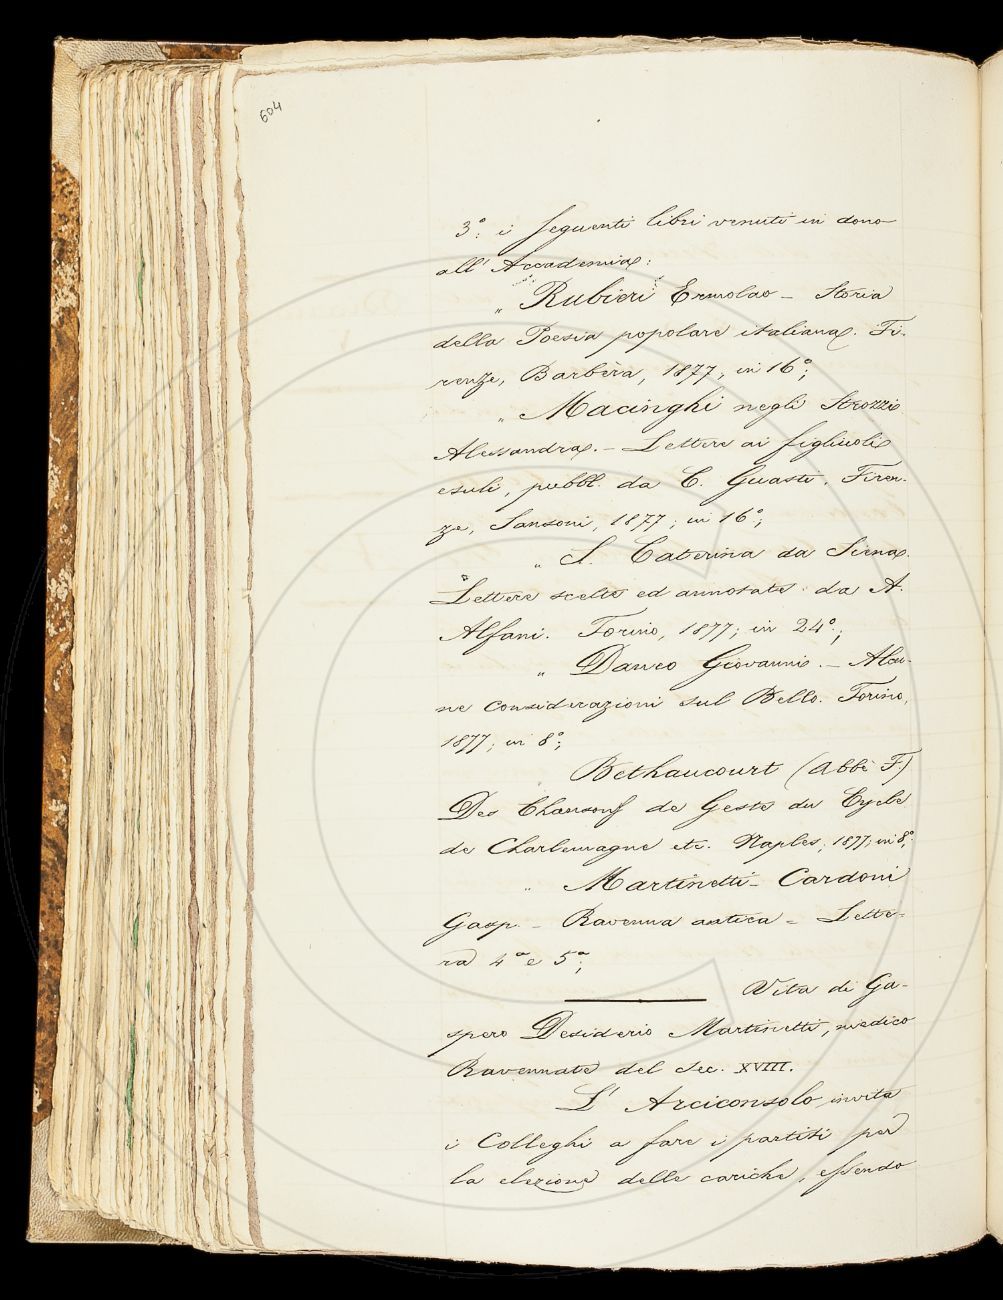 604
3.° i seguenti libri venuti in dono
all' Accademia:
" Rubieri Ermolao – Storia
della Poesia popolare italiana. Fi-
renze, Barbèra, 1877, in 16°;
" Macinghi negli Strozzi
Alessandra. – Lettere ai figliuoli
esuli, pubbl. da C. Guasti. Firen-
ze, Sansoni, 1877; in 16°;
" S. Caterina da Siena.
Lettere scelte ed annotate da A.
Alfani. Torino, 1877; in 24°;
" Daneo Giovanni. – Alcu-
ne considerazioni sul Bello. Torino,
1877; in 8°;
Bethancourt (Abbé F.)
Des Chansons de Geste du Cycle
de Charlemagne etc. Naples, 1877; in 8°;
" Martinetti-Cardoni
Gasp. – Ravenna antica = Lette-
ra 4ª e 5ª;
——— Vita di Ga-
spero Desiderio Martinetti, medico
Ravennate del sec. XVIII.
L' Arciconsolo invita
i Colleghi a fare i partiti per
la elezione delle cariche, essendo